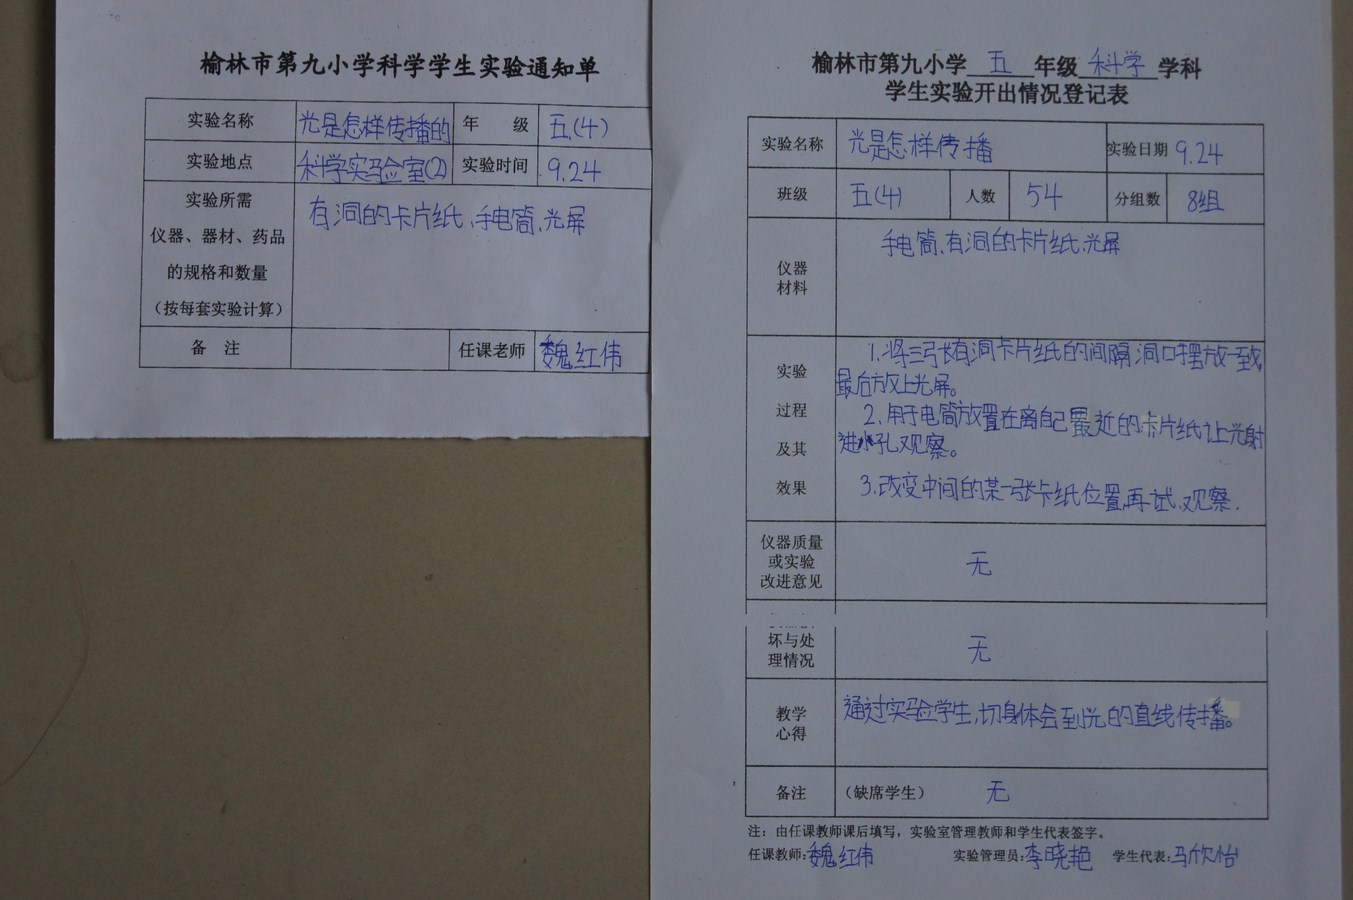 榆林市第九小学科学学生实验通知单
实验名称 光是怎样传播的 年 级 五(4)
实验地点 科学实验室(2) 实验时间 9.24
实验所需
仪器、器材、药品
的规格和数量
（按每套实验计算）
有洞的卡片纸、手电筒、光屏
备 注 任课老师 魏红伟
榆林市第九小学 五 年级 科学 学科
学生实验开出情况登记表
实验名称 光是怎样传播 实验日期 9.24
班级 五(4) 人数 54 分组数 8组
仪器
材料
手电筒、有洞的卡片纸、光屏
实验
过程
及其
效果
1.将三张有洞卡片纸的间隔洞口摆放一致
最后放上光屏。
2.用手电筒放置在离自己最近的卡片纸让光射
进小孔观察。
3.改变中间的某一张卡纸位置再试、观察.
仪器质量
或实验
改进意见
无
坏与处
理情况
无
教学
心得
通过实验学生,切身体会到光的直线传播。
备注 （缺席学生） 无
注：由任课教师课后填写，实验室管理教师和学生代表签字。
任课教师:魏红伟 实验管理员:李晓艳 学生代表:马欣怡